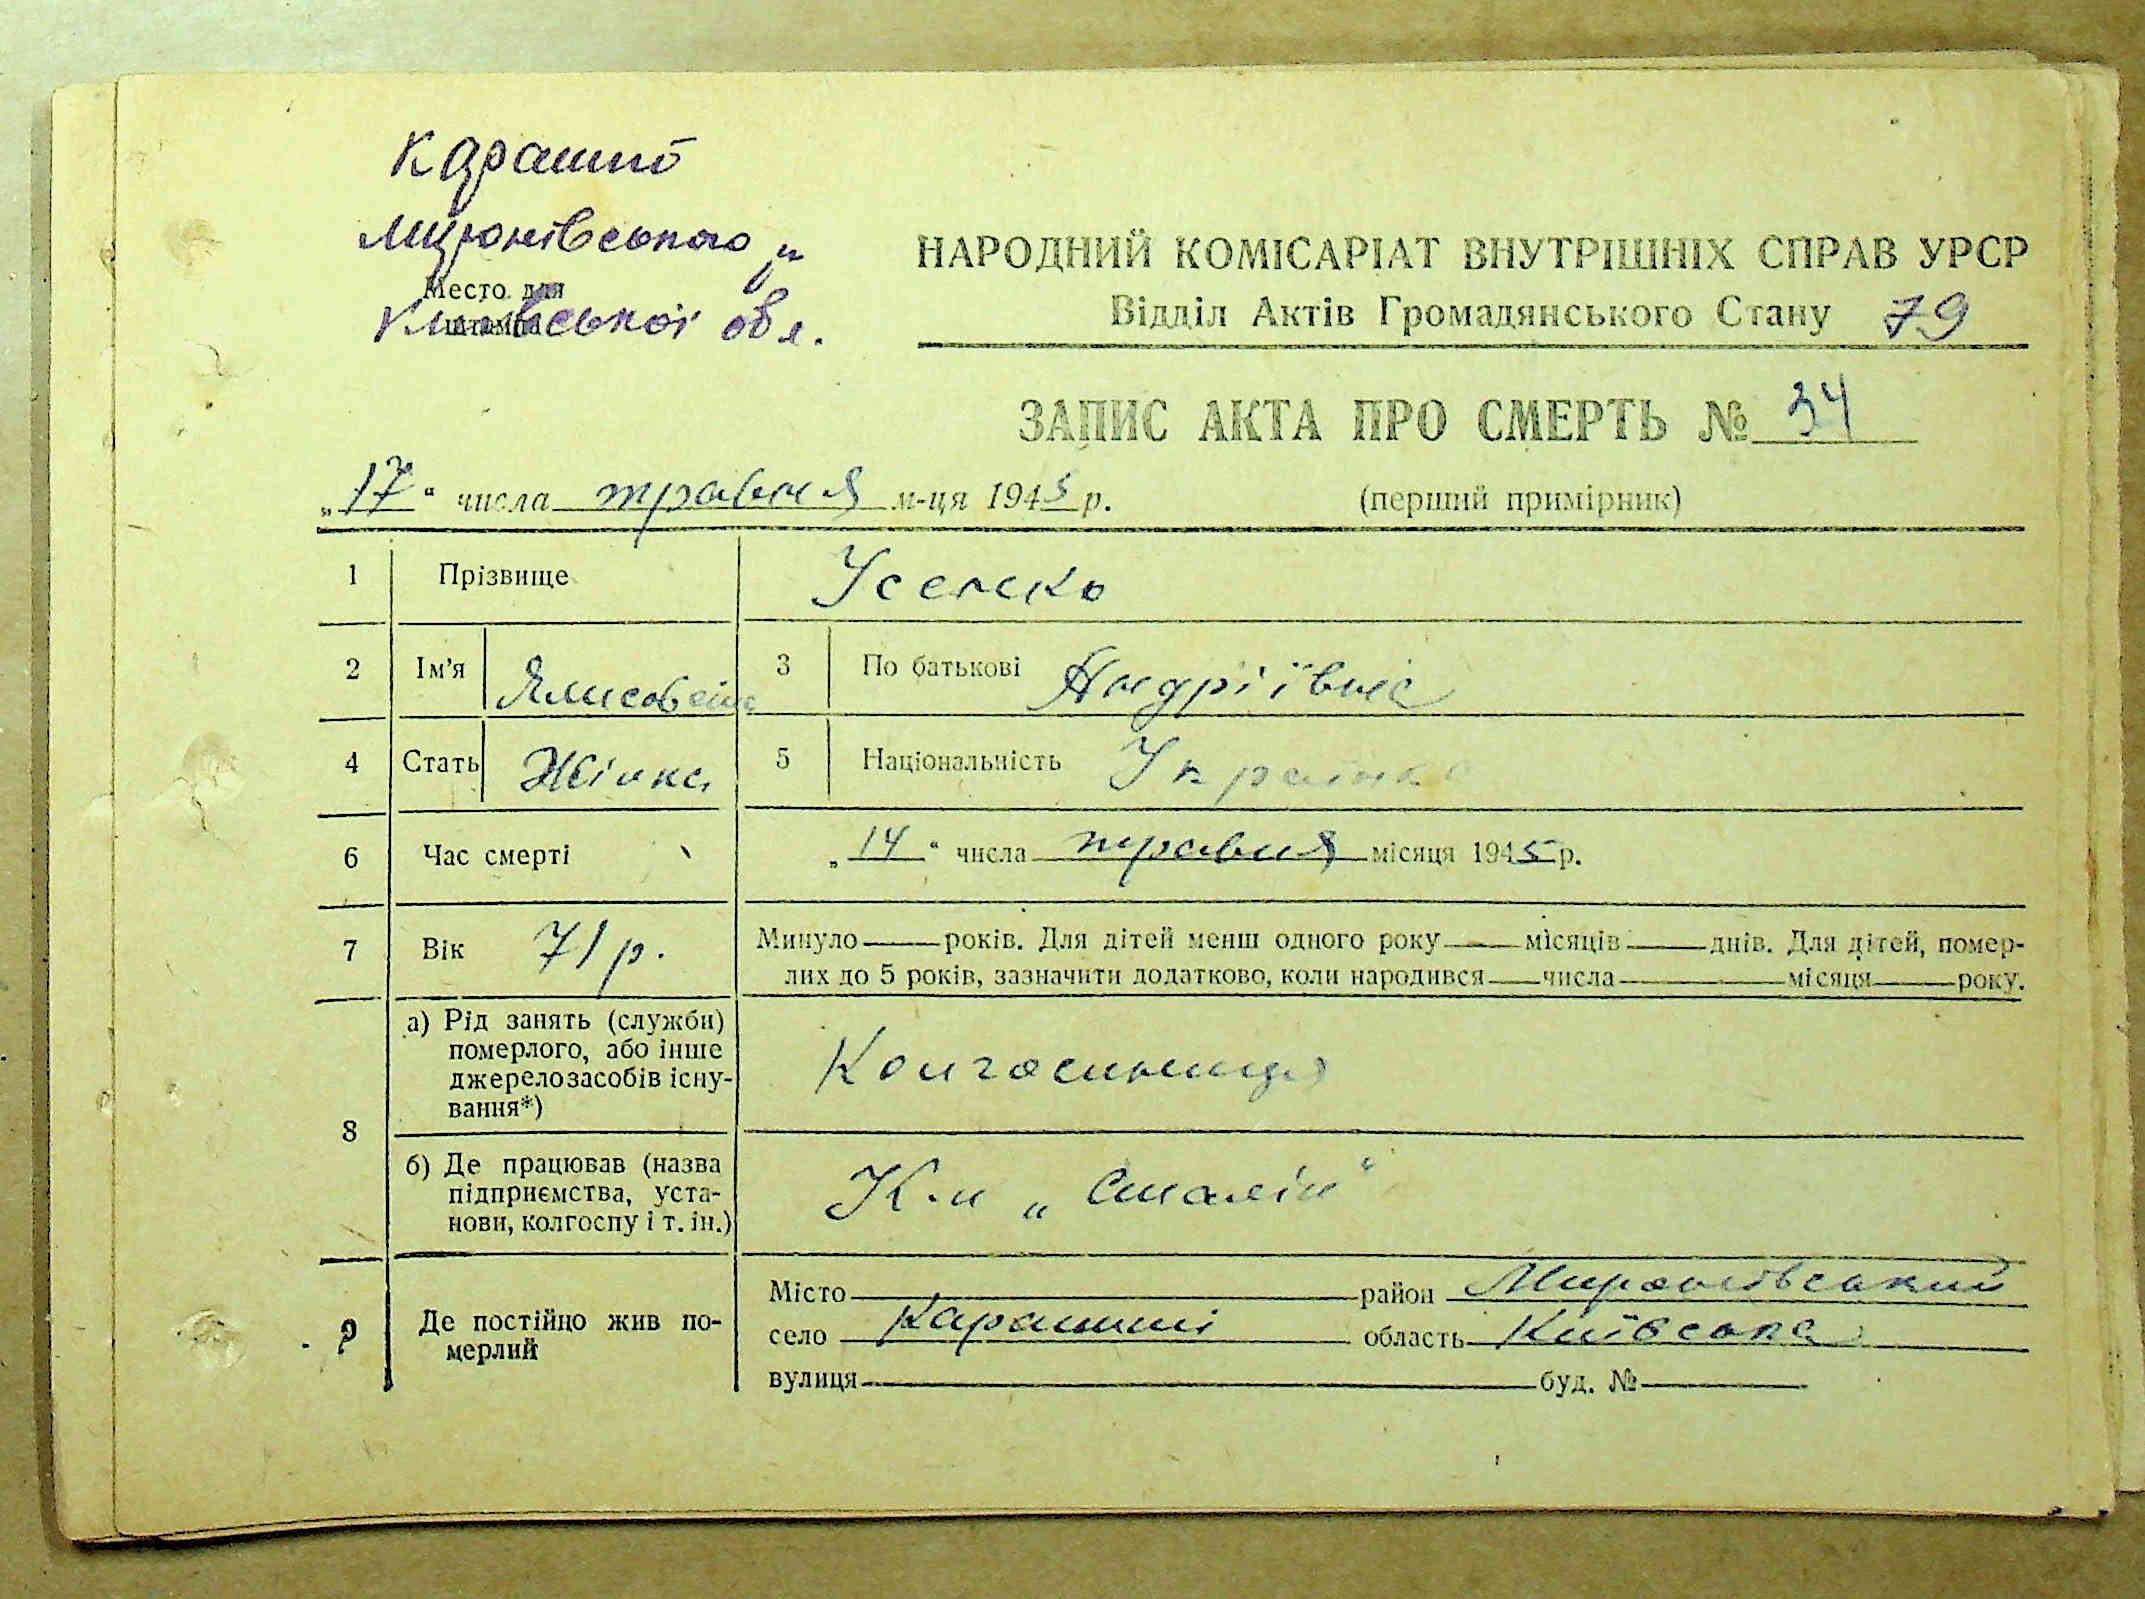 Карашин
Миронівського р
Место для
штампа
Київської обл.
НАРОДНИЙ КОМІСАРІАТ ВНУТРІШНІХ СПРАВ УРСР
Відділ Актів Громадянського Стану 79
ЗАПИС АКТА ПРО СМЕРТЬ № 34
„17“ числа травня м-ця 1945 р. (перший примірник)
1 Прізвище Усенско
2 Ім'я 3 По батькові Андріївна
4 Стать Жінка 5 Національність Українка
6 Час смерті „14“ числа травня місяця 1945 р.
7 Вік 71 р. Минуло — років. Для дітей менш одного року — місяців — днів. Для дітей, помер-
лих до 5 років, зазначити додатково, коли народився — числа — місяця — року.
8 а) Рід занять (служби)
померлого, або інше
джерелозасобів існу-
вання*)
Колгоспниця
б) Де працював (назва
підприємства, уста-
нови, колгоспу і т. ін.)
К-п „Сталін“
9 Де постійно жив по-
мерлий
Місто — район Миронівський
село Карашині область Київська
вулиця — буд. № —